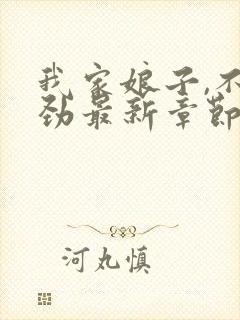 我家娘子,不
劲最新章节
河丸慎